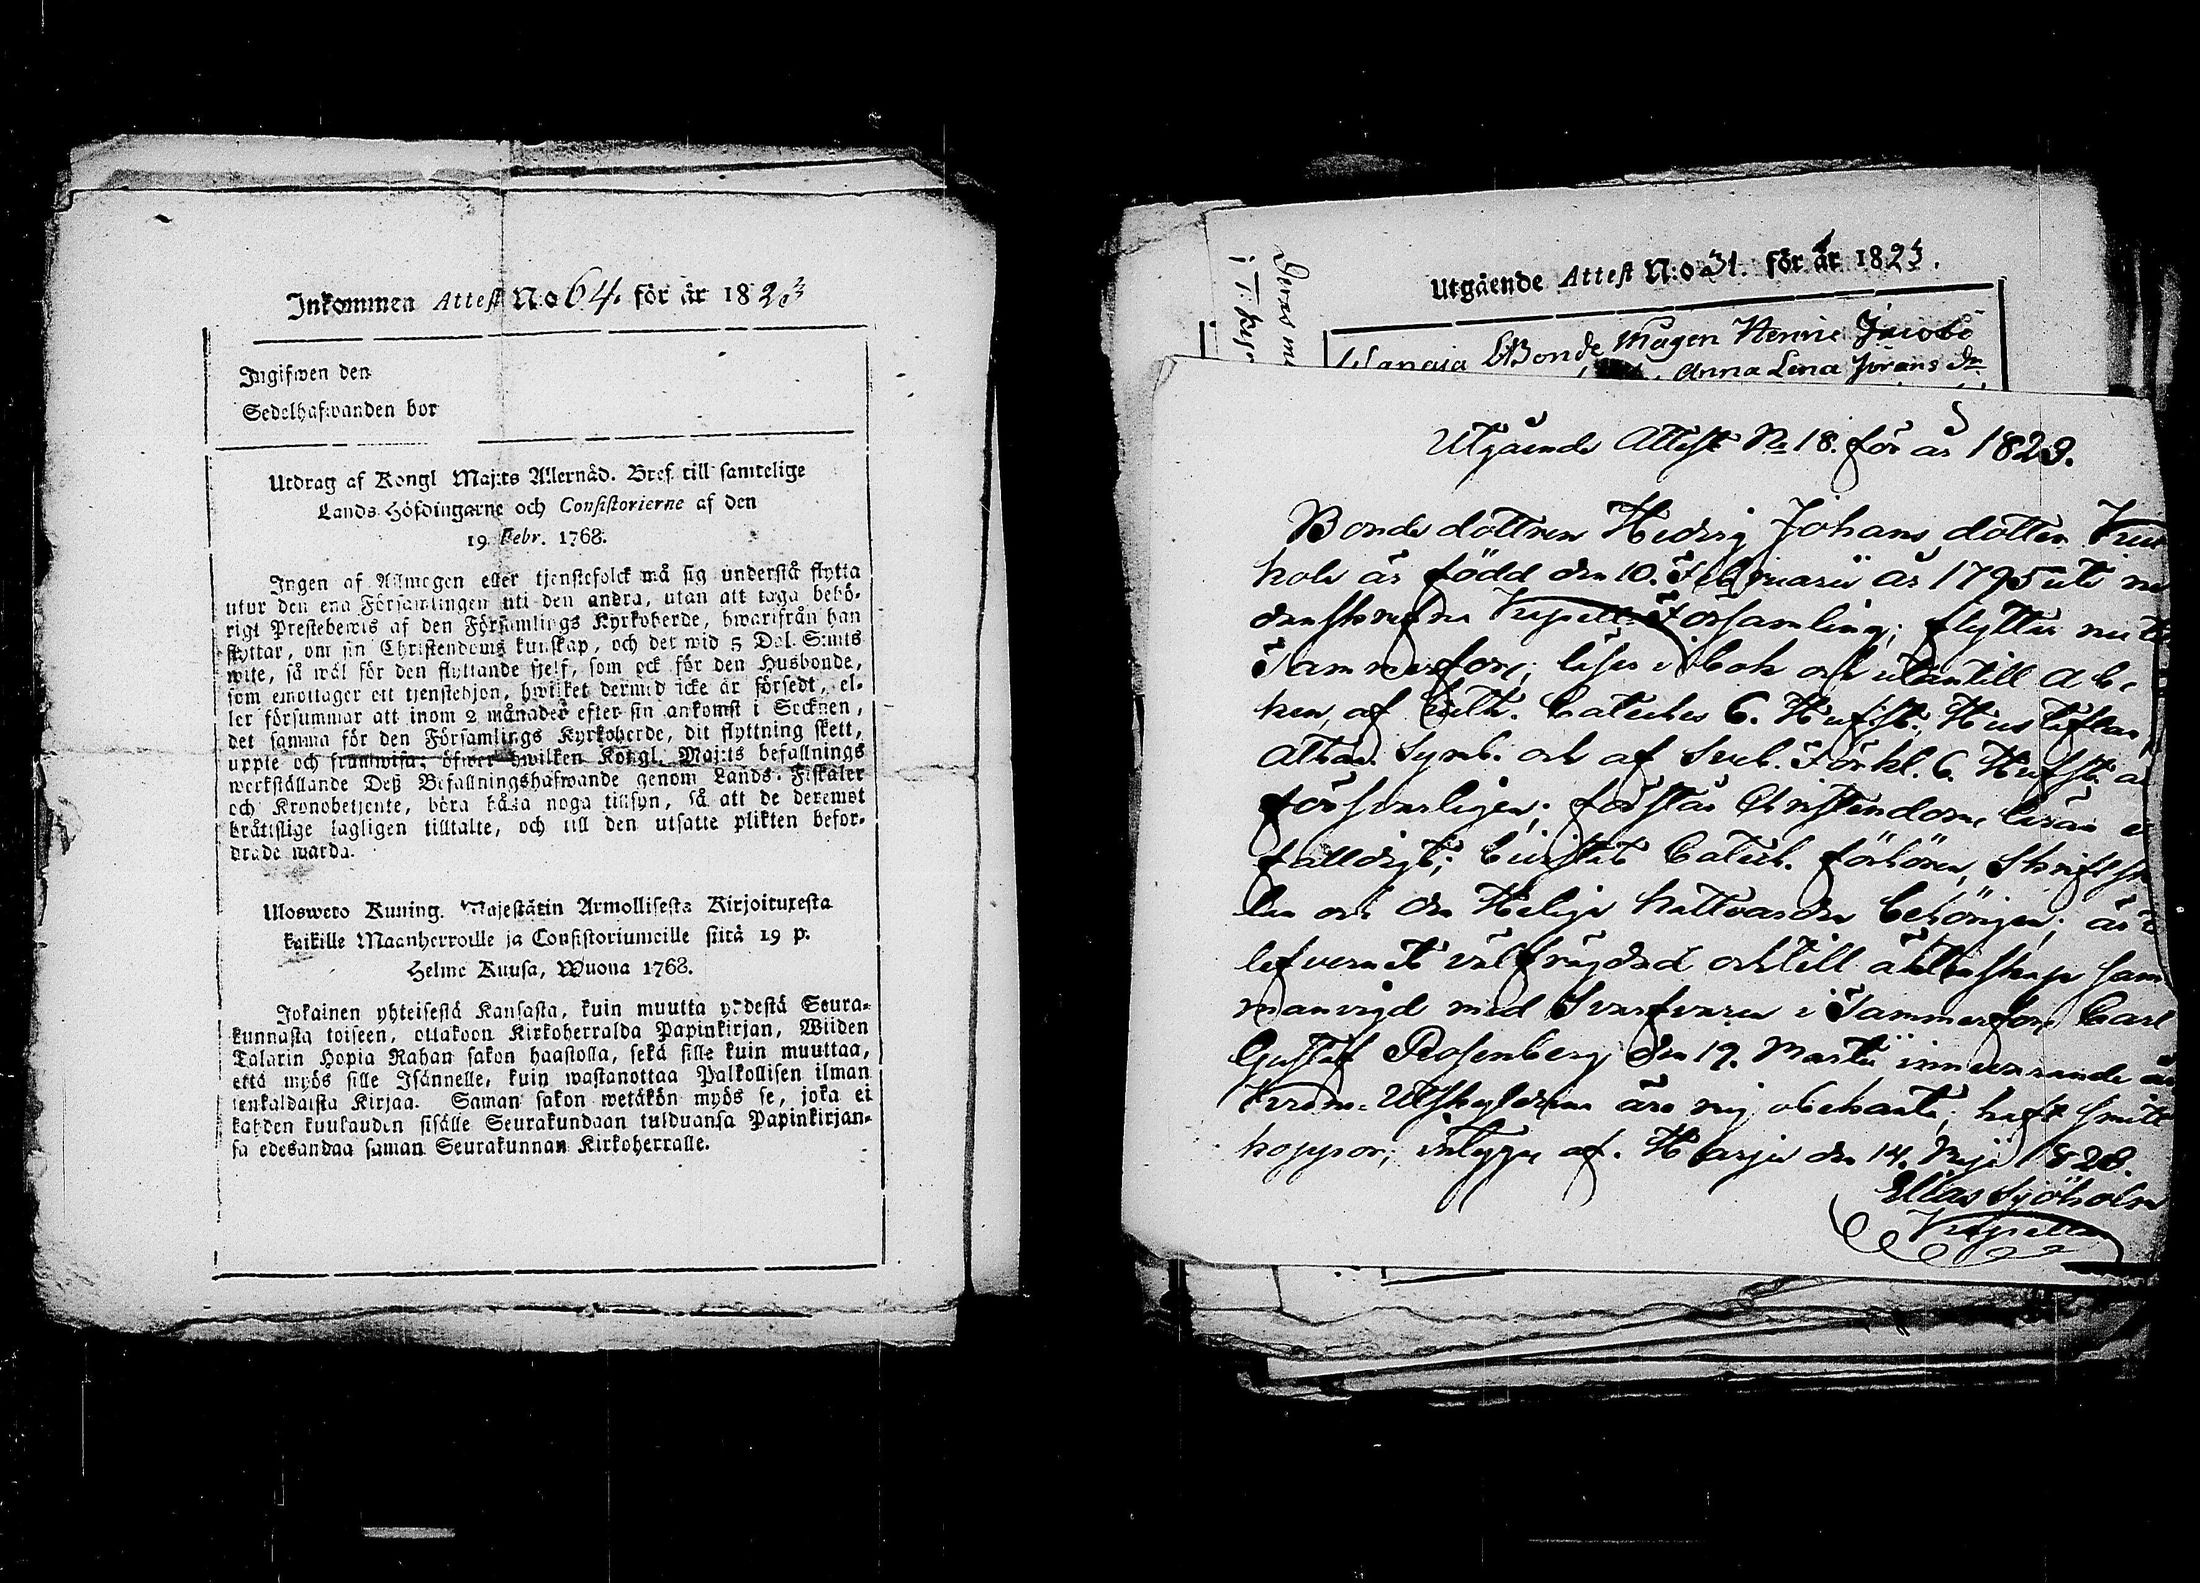 Inkommen Attest N:o 64. för år 1823
Ingifwen den
Sedelhafwanden bor
Utdrag af Kongl Maj:ts Allernåd. Bref till samtelige
Lands Höfdingarne och Consistorierne af den
19 Febr. 1768.
Ingen af Allmogen eller tjenstefolck må sig understå flytta
utur den ena Församlingen uti den andra, utan att taga behö-
rigt Prestebewis af den Församlings Kyrkoherde, hwarifrån han
flyttar, om sin Christendoms kunskap, och det wid 5 Dal. S:mts
wite, så wäl för den flyttande sjelf, som ock för den Husbonde,
som emottager ett tjenstehjon, hwilket dermed icke är försedt, el-
ler försummar att inom 2 månader efter sin ankomst i Socknen,
det samma för den Församlings Kyrkoherde, dit flyttning skett,
uppte och framwisa; öfwer hwilken Kongl. Maj:ts befallnings
werkställande Deß Befallningshafwande genom Lands-Fiskaler
och Kronobetjente, böra hålla noga tillsyn, så att de deremot
bråttslige lagligen tilltalte, och till den utsatte plikten befor-
drade warda.
Ulosweto Kuning. Majestätin Armollisesta Kirjoituxesta
kaikille Maanherroille ja Consistoriumeille siitä 19 p.
Helme Kuusa, Wuona 1768.
Jokainen yhteisestä Kansasta, kuin muutta yhdestä Seura-
kunnasta toiseen, ottakoon Kirkoherralda Papinkirjan, Wiiden
Talarin Hopia Rahan sakon haastolla, sekä sille kuin muuttaa,
että myös sille Isännelle, kuin wastanottaa Palkollisen ilman
senkaldaista Kirjaa. Saman sakon wetäkön myös se, joka ei
kahden kuukauden sisälle Seurakundaan tulduansa Papinkirjan-
sa edesandaa saman Seurakunnan Kirkoherralle.
Utgående Attest N:o 31. för år 1823.
Bonde Magen Henric Jacobs
Anna Lena Jörans dr
Utgående Attest No 18. för år 1823.
Bonde dottren Hedvig Johans dotter
är född den 10. Februarii år 1795 uti
Kapell Församling; flyttar nu til
Tammerfors; läser i bok och utantill a b c
ken, af Luth. Cateches 6. Hufst. Hustaflan,
Athan. Symb. och af Sveb. Förkl. 6. Hufst.
försvarligen; förstår Christendoms läran
faldigt; bevistat Catech. förhören,
och den Heliga Nattvarden behörigen; är
lefvernet välfrägdad och till äktenskap sam
manvigd med Svarfvaren i Tammerfors Carl
Gustaf Rosenberg den 19. Martii innevarande år
Krono-Utskylderna äro mig obekanta; haft Smitt
koppor; intygar af. Harju den 14. Maji 1823.
Elias Sjöholm
Kapellan